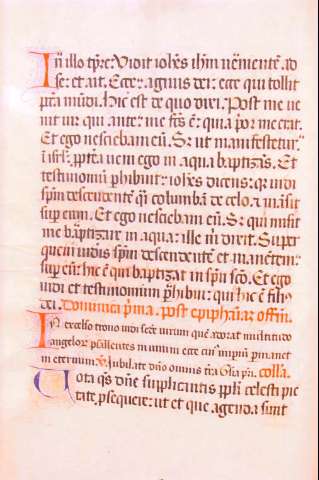 In illo tpre: Vidit iohes ihm uenientē ad
se: et ait. Ecce agnus dei: ecce qui tollit
pctā mūdi. Hic est de quo dixi. Post me ue
nit uir qui ante me fcs ē: quia por me erat.
Et ego nesciebam eū. Sz ut manifestetur
ī isrl: pptea ueni ego in aqua baptizās. Et
testimoniū phibuit iohes dicens: qr uidi
spm descendentē qi columbā de celo, et māsit
sup eum. Et ego nesciebam eū. Sz qui misit
me baptizare in aqua: ille m dixit. Super
quem uidis spm descendentē et manētem
sup eū: hic ē qui baptizat in spū sco. Et ego
uidi et testimonium phibui: qr hic ē fili
dei. Dominica pma post epiphaniaz offm.
In excelso trono uidi sede uirum quē adorat multitudo
angeloz psallentes in unum ecce cui impiū
in eternum. Iubilate dno omnis tra Gla pri. Colla.
Uota qs dne supplicantis ppli celesti pie
tate psequere: ut et que agenda sunt